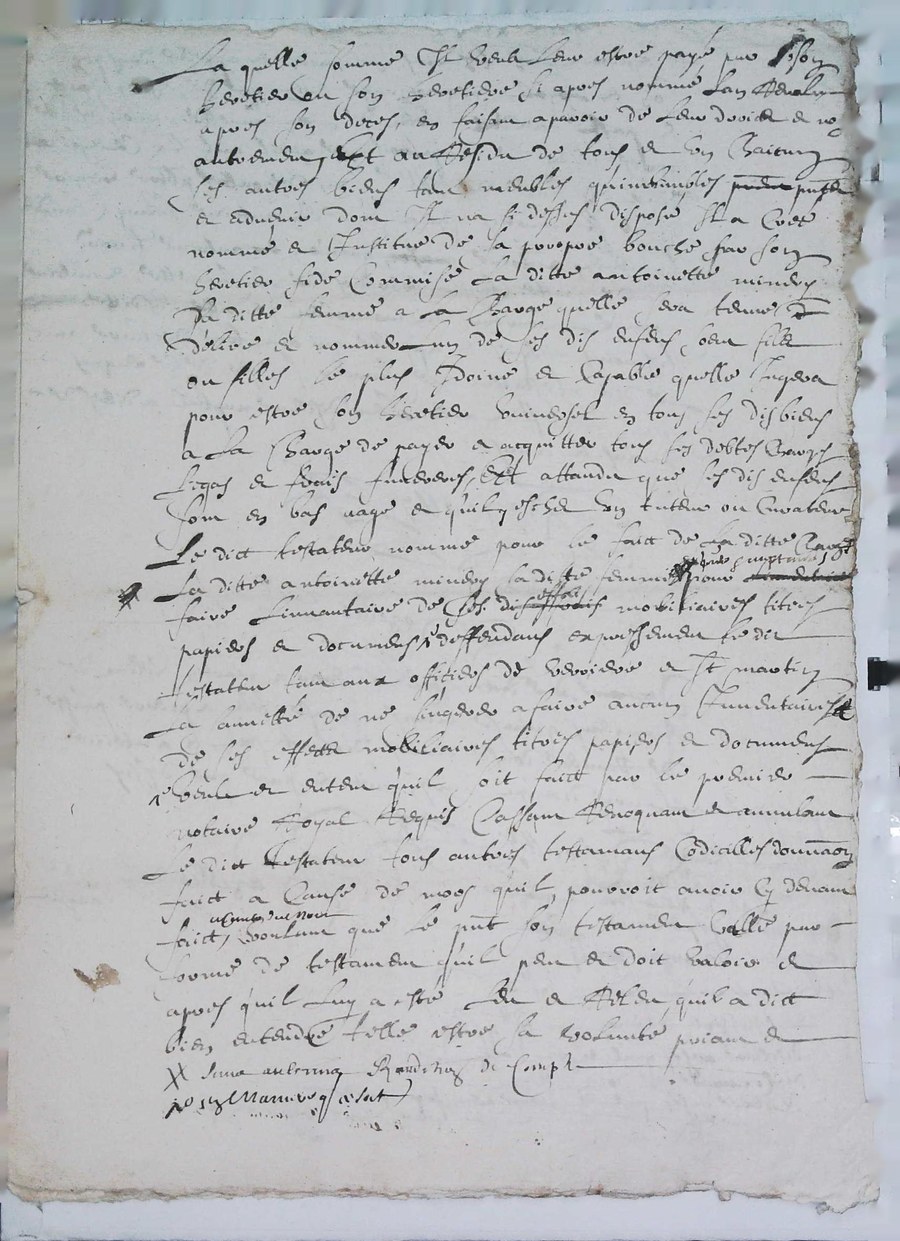 La quelle somme Il veult leur estre payé par son
heretier ou son heretiere si apres nommé Lan Revolu
apres son deces, en faisant aparoir de leur droict et no
autrement, Et au Residu de tous et un Chaicung
ses autres biens tant meubles qu'immubles
et advenir dont Il na si desses disposé Il a Creé
nommé et Institué de sa propre bouche par son
heretier fide Commisse La ditte antoinette mindry
sa ditte femme a La Charge quelle sera tenue
d'elire et nommer Lun de ses dis enfens soit filz
ou filles le plus Idoine et Capable quelle Jugera
pour estre son heretier universel en tous ses dis biens
a La Charge de payer et acquitter tous ses debtes Charges
Legas et frais funereus, Et attandu que ses dis enfens
sont en bas aage et qu'il y eschet un tuteur ou Curateur
Le dict testateur nomme pour le faict de La ditte Charge
La ditte antoinette mindry sa ditte femme pour
faire Linvantaire de ses dis effais mobiliaires titres
papiers et documens deffendans expressement le dit
testateur tant aux offitiers de verriere et St martin
La annette de ne singerer a faire aucun Inventaire
de ses effetz mobiliaires titres papiers et documens
veult et entent qu'il soit faict par le premier
notaire Royal Requis Cassant Revoquant et annulant
Le dict testateur tous autres testamans Codicilles donnaon
faict a Cause de mors qu'il pourroit avoir Cy devant
faict, voulant que le pnt son testament vallie par
forme de testament qu'il peut et doit valoir et
apres qu'il Luy a esté Leu et Releu qu'il a dict
bien entendre telle estre sa volunté priant et